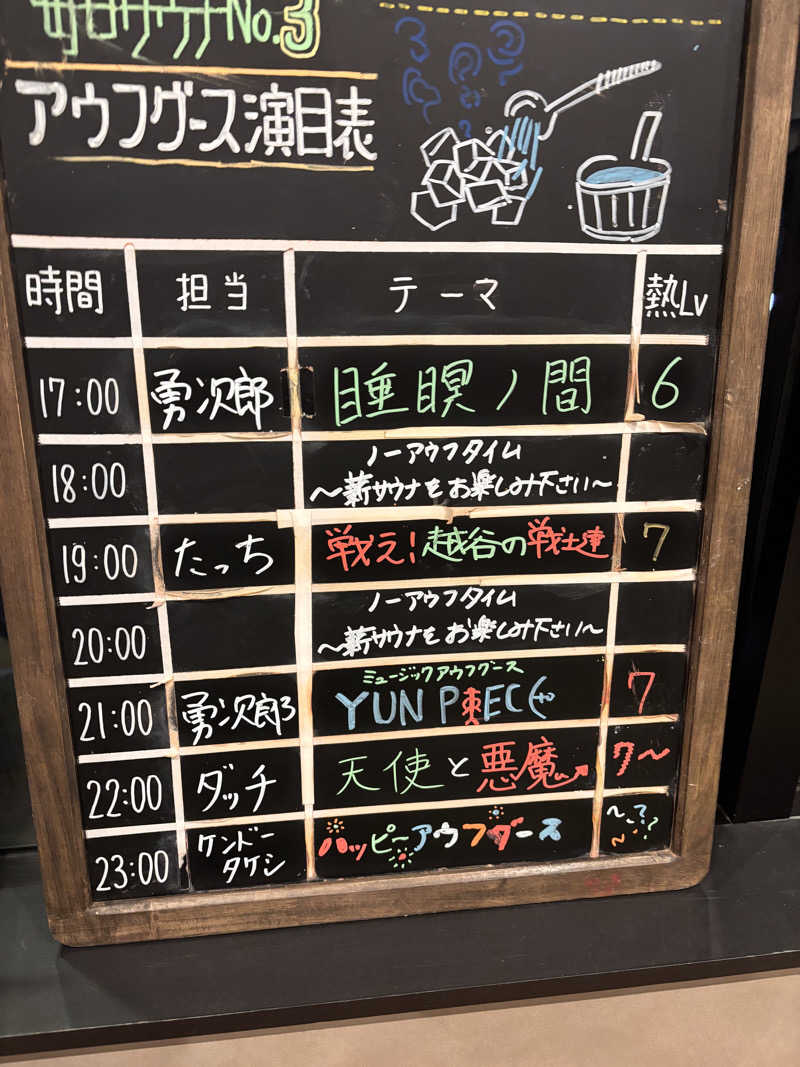 No.3
アウフグース演目表
時間 担当 テーマ 熱Lv
17:00 勇次郎 睡瞑ノ間 6
18:00 ノーアウフタイム
〜薪サウナをお楽しみ下さい〜
19:00 たっち 戦え!越谷の戦士達 7
20:00 ノーアウフタイム
〜薪サウナをお楽しみ下さい〜
ミュージックアウフグース
21:00 勇次郎 YUN PIECE 7
22:00 ダッチ 天使と悪魔 7〜
23:00 ケンドー
タケシ ハッピーアウフグース 〜??